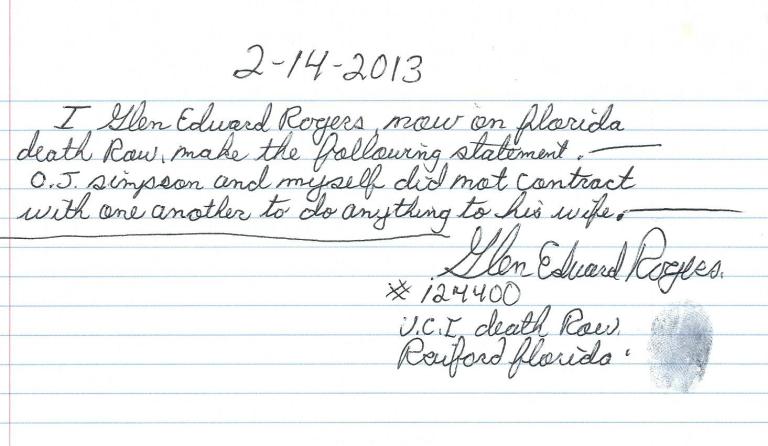 2-14-2013
I Glen Edward Rogers, now on florida
death Row, make the following statement.
O.J. simpson and myself did not contract
with one another to do anything to his wife.
Glen Edward Rogers.
# 124400
U.C.I. death Row.
Raiford florida.